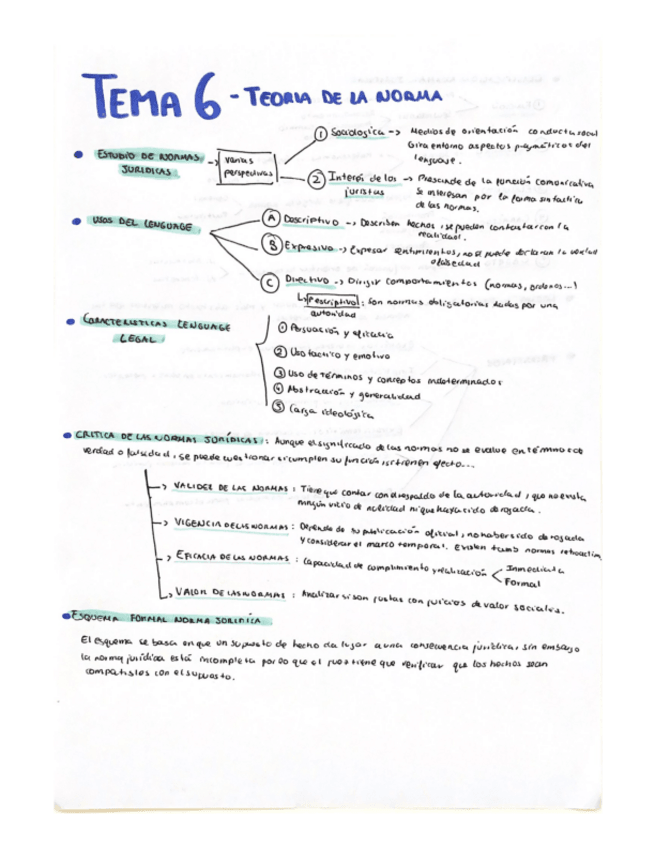 TEMA 6 - TEORIA DE LA NORMA
ESTUDIO DE NORMAS JURIDICAS -> varias perspectivas
① Sociologica -> Medios de orientación conducta social
Gira entorno aspectos pragmáticos del
lenguaje.
② Interés de los juristas -> Prescinde de la función comunicativa
se interesan por la forma sintactica
de las normas.
USOS DEL LENGUAGE
Ⓐ Descriptivo -> Describen hechos, se pueden contrastar con la
realidad.
Ⓑ Expresivo -> Expresar sentimientos, no se puede declarar la verdad
o falsedad
Ⓒ Directivo -> Dirigir comportamientos (normas, ordenes...)
↳ Prescriptivo: Son normas obligatorias dadas por una
autoridad
CARACTERISTICAS LENGUAGE
LEGAL
① Persuación y eficacia
② Uso tactico y emotivo
③ Uso de términos y conceptos indeterminados
④ Abstracción y generalidad
⑤ Carga ideológica
CRITICA DE LAS NORMAS JURÍDICAS: Aunque el significado de las normas no se evalue en términos de
verdad o falsedad, se puede cuestionar si cumplen su función, si tienen efecto...
-> VALIDEZ DE LAS NORMAS: Tiene que contar con el respaldo de la autoridad, que no exista
ningún vicio de nulidad ni que haya sido derogada.
-> VIGENCIA DE LAS NORMAS: Depende de su publicación oficial, no haber sido derogada
y considerar el marco temporal. Existen tamb normas retroactiv
-> EFICACIA DE LAS NORMAS: Capacidad de cumplimiento y realización < Inmediata
Formal
-> VALOR DE LAS NORMAS: Analizar si son justas con juicios de valor sociales.
ESQUEMA FORMAL NORMA JURIDICA
El esquema se basa en que un supuesto de hecho da lugar a una consecuencia juridica, sin embargo
la norma jurídica está incompleta por lo que el juez tiene que verificar que los hechos sean
compatibles con el supuesto.